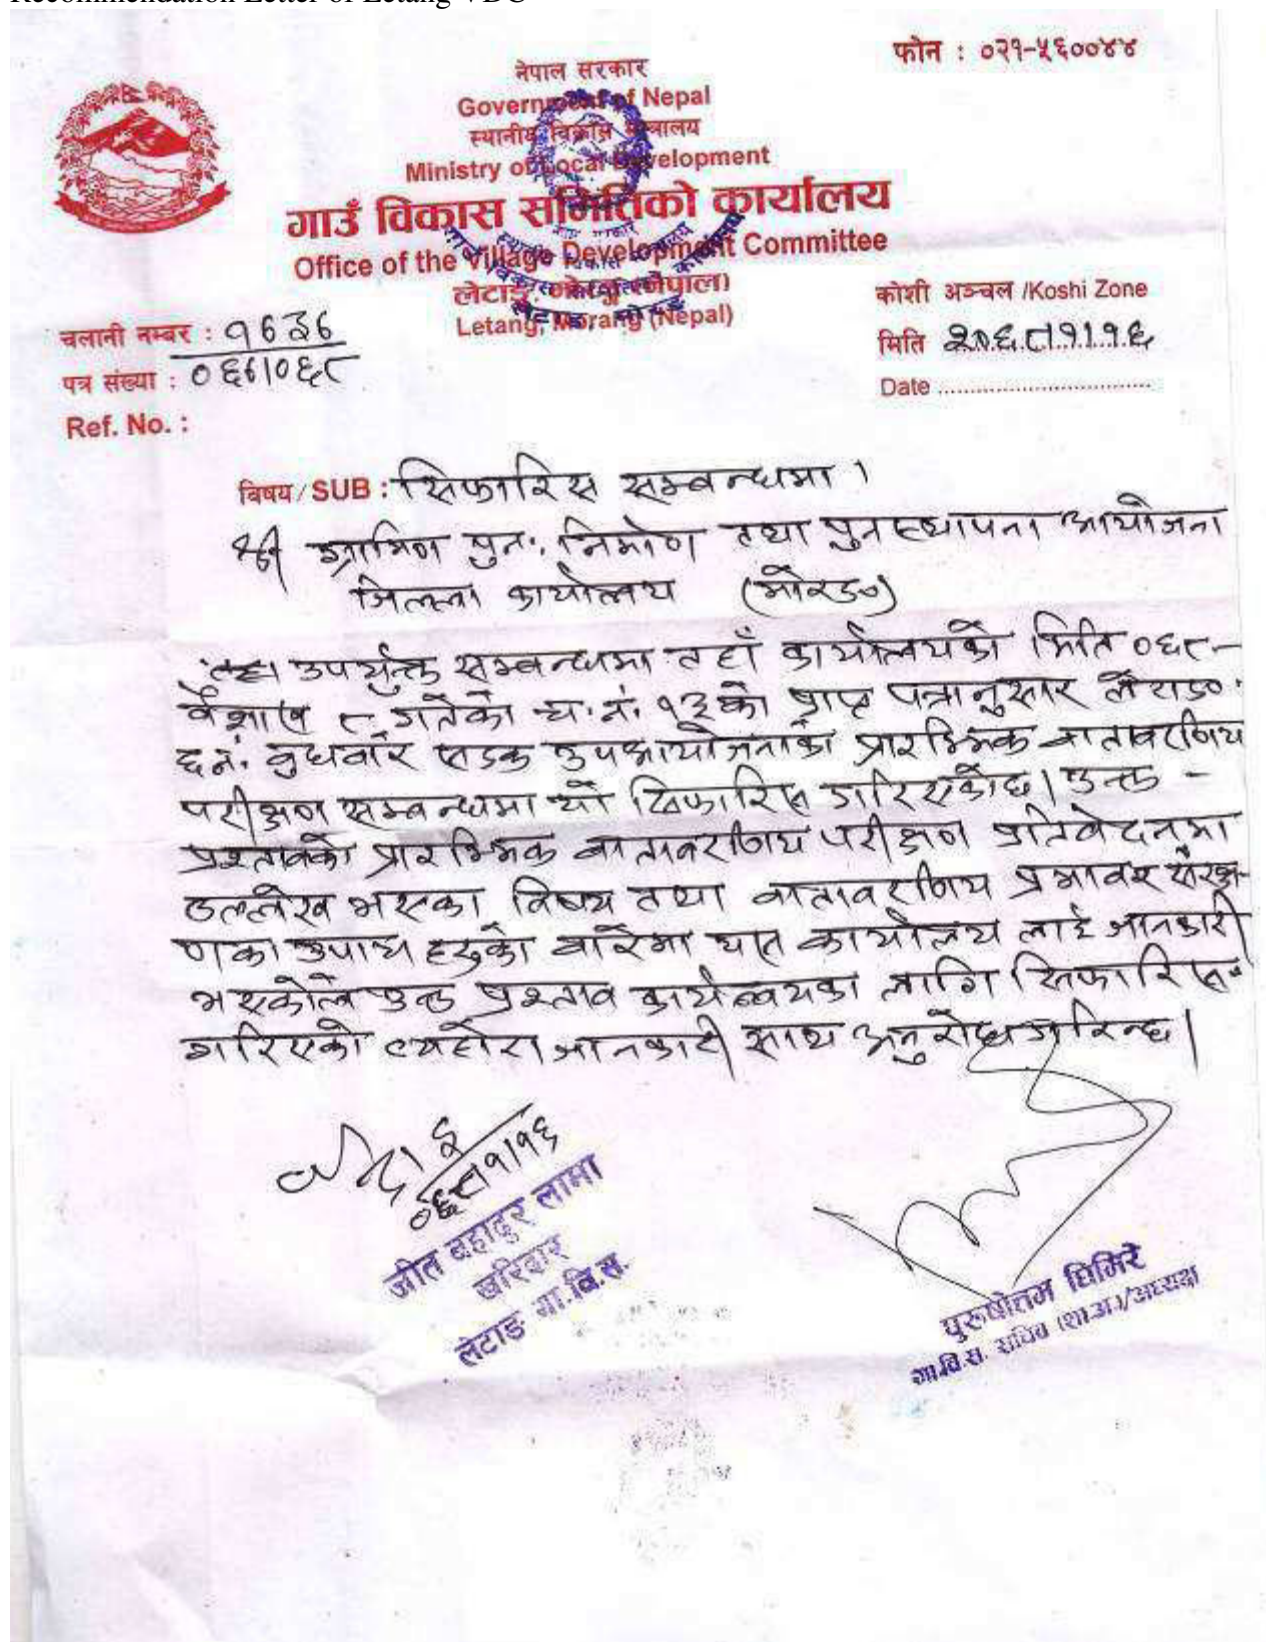 Recommendation Letter of Letang VDC
फोन : ०२१-५६००४४
नेपाल सरकार
Government of Nepal
स्थानीय विकास मन्त्रालय
Ministry of Local Development
गाउँ विकास समितिको कार्यालय
Office of the Village Development Committee
लेटाङ, मोरङ (नेपाल)
Letang, Morang (Nepal)
कोशी अञ्चल /Koshi Zone
चलानी नम्बर : १७३७
मिति २०६८।१।१६
पत्र संख्या : ०६७।०६८
Date
Ref. No. :
विषय/SUB : सिफारिस सम्बन्धमा ।
श्री ग्रामिण पुनः निर्माण तथा पुनस्थापना आयोजना
जिल्ला कार्यालय (मोरङ)
उपर्युक्त सम्बन्धमा तहाँ कार्यालयको मिति ०६८-
वैशाख ८ गतेको च.नं. १३को प्राप्त पत्रानुसार लेटाङ
६ नं. बुधवारे सडक उपआयोजनाको प्रारम्भिक वातावरणिय
परीक्षण सम्बन्धमा यो सिफारिस गरिएकोछ। उक्त -
प्रस्तावको प्रारम्भिक वातावरणिय परीक्षण प्रतिवेदनमा
उल्लेख भएका विषय तथा वातावरणिय प्रभावर संरक्ष-
णका उपाय हरुको बारेमा यस कार्यालय लाई जानकारी
भएकोले उक्त प्रस्ताव कार्यन्वयका लागि सिफारिस
गरिएको व्यहोरा जानकारी साथ अनुरोध गरिन्छ।
०६८।१।१६
जीत बहादुर लामा
खरिदार
लेटाङ गा.वि.स.
पुरुषोत्तम घिमिरे
गा.वि.स. सचिव (शा.अ.)/अध्यक्ष